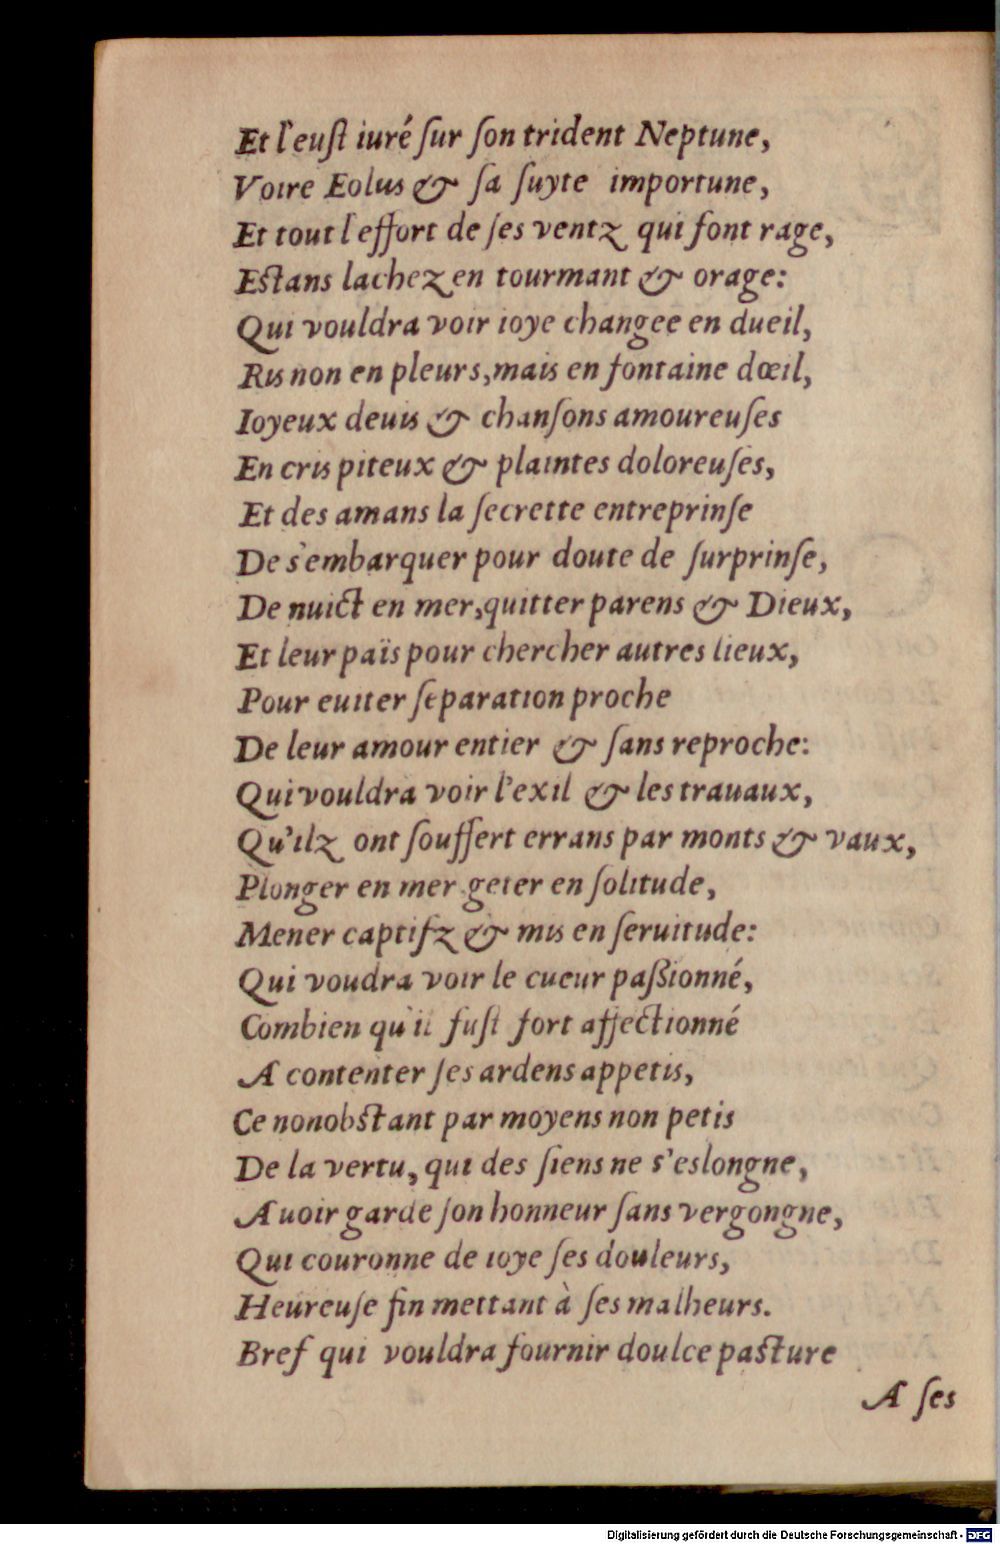 Et l'euſt iuré ſur ſon trident Neptune,
Voire Eolus & ſa ſuyte importune,
Et tout l'effort de ſes ventz qui font rage,
Eſtans lachez en tourmant & orage:
Qui vouldra voir ioye changee en dueil,
Ris non en pleurs, mais en fontaine dœil,
Ioyeux deuis & chanſons amoureuſes
En cris piteux & plaintes doloreuſes,
Et des amans la ſecrette entreprinſe
De s'embarquer pour doute de ſurprinſe,
De nuict en mer, quitter parens & Dieux,
Et leur païs pour chercher autres lieux,
Pour euiter ſeparation proche
De leur amour entier & ſans reproche:
Qui vouldra voir l'exil & les trauaux,
Qu'ilz ont ſouffert errans par monts & vaux,
Plonger en mer geter en ſolitude,
Mener captifz & mis en ſeruitude:
Qui voudra voir le cueur paßionné,
Combien qu'il fuſt fort affectionné
A contenter ſes ardens appetis,
Ce nonobſtant par moyens non petis
De la vertu, qui des ſiens ne s'eslongne,
Auoir garde ſon honneur ſans vergongne,
Qui couronne de ioye ſes douleurs,
Heureuſe fin mettant à ſes malheurs.
Bref qui vouldra fournir doulce paſture
A ſes
Digitalisierung gefördert durch die Deutsche Forschungsgemeinschaft - DFG